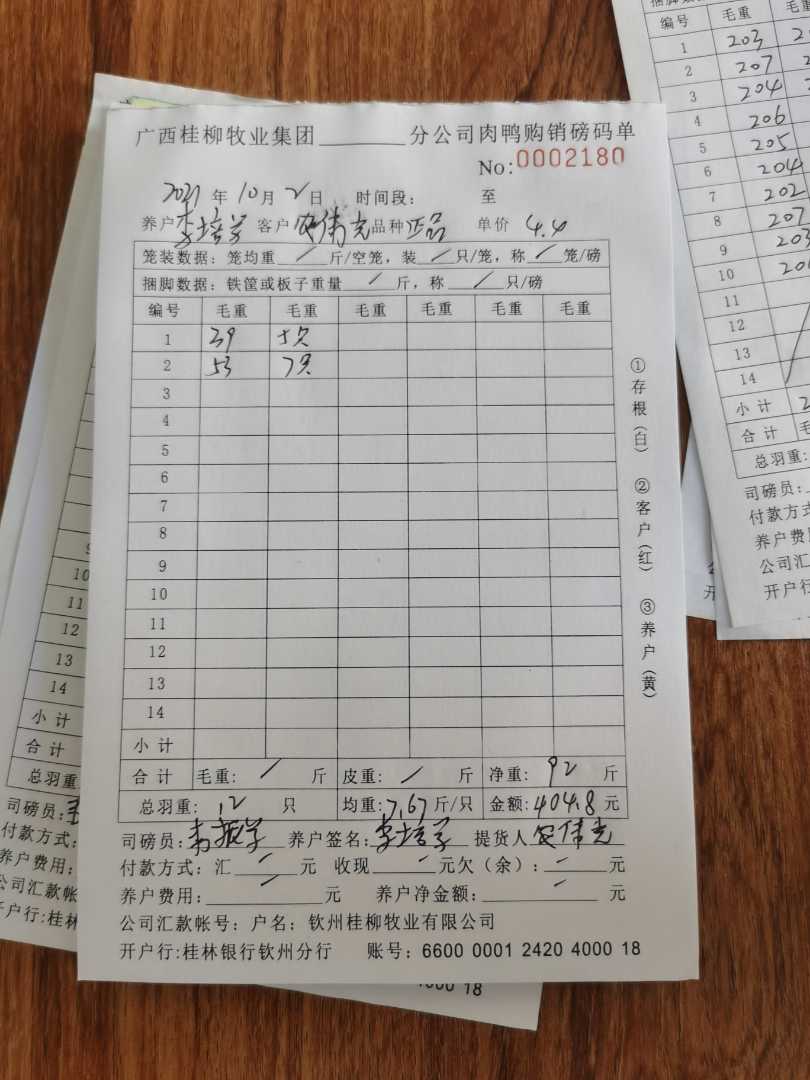 广西桂柳牧业集团______分公司肉鸭购销磅码单
No:0002180
2021年10月2日 时间段: 至
养户李培学 客户 伟光 品种正品 单价 4.4
笼装数据: 笼均重 / 斤/空笼, 装 / 只/笼, 称 / 笼/磅
捆脚数据: 铁筐或板子重量 / 斤, 称 / 只/磅
编号 毛重 毛重 毛重 毛重 毛重 毛重
1 39 5只
2 53 7只
3
4
5
6
7
8
9
10
11
12
13
14
小计
合计 毛重: / 斤 皮重: / 斤 净重: 92 斤
总羽重: 12 只 均重: 7.67 斤/只 金额: 404.8 元
司磅员: 韦振学 养户签名: 李培学 提货人 伟光
付款方式: 汇 — 元 收现 — 元欠(余): — 元
养户费用: — 元 养户净金额: — 元
公司汇款帐号: 户名: 钦州桂柳牧业有限公司
开户行:桂林银行钦州分行 账号: 6600 0001 2420 4000 18
①存根(白) ②客户(红) ③养户(黄)
编号 毛重
1 203
2 207
3 204
4 206
5 205
6 204
7 202
8 207
9 203
10
11
12
13
14
小计
合计
总羽重:
司磅员:
付款方式
养户费
公司汇
开户行
10
11
12
13
14
小计
合计
总羽重
司磅员:
付款方式:
养户费用:
公司汇款帐
开户行:桂林
4000 18